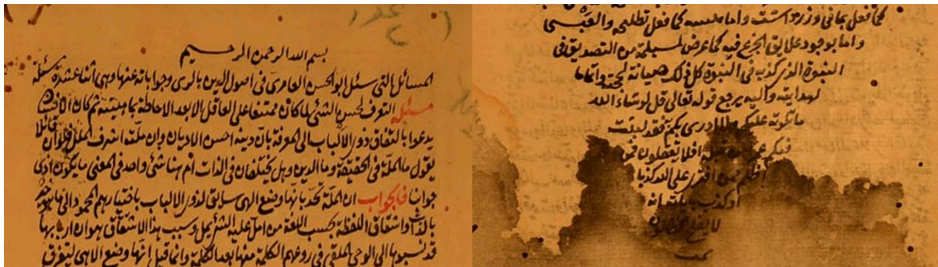 بسم الله الرحمن الرحيم
المسائل التي سئل ابو الحسن العامري في اصول الدين بالري وجواباته عنها وهي اثنا عشرة مسئلة
مسئلة التعرف لحسن الشئ لما كان ممتنعا على العاقل الا بعد الاحاطة بماهيته ثم كان الانسان
يدعوا بالثقات ذوي الالباب الى المعرفة بان دينه احسن الاديان وان ملته اشرف الملل فلو ان قائلا
يقول ما الملة في الحقيقة وما الدين وهل يختلفان في الذات ام هما شئ واحد في المعنى ما يكون اذن
جوابنا فالجواب ان الملة تحد بانها وضع الهي سابق لذوي الالباب باختيارهم المحمود الى ما هو خير
بالذات واشتقاق اللفظة بحسب اللغة من امل عليه الشئ يمل وسبب هذا الاشتقاق هو ان اربابها
قد نسبوها الى الوحي الملقى في روعهم الكلمة منها بعد الكلمة وانما قيل انها وضع الاهي ليتفرق
كما فعل بماني وزرداشت واما كما فعل تطليحة والعبسي
واما بوجود علايق الجزع فيه كما عرض لمسيلمة من التصديق في
النبوة الذي كذبه في النبوة كل ذلك صيانة لحجته واتماما
لهدايته واليه يرجع قوله تعالى قل لو شاء الله
ما تلوته عليكم ولا ادريكم به فقد لبثت
فيكم عمرا قبله افلا تعقلون فمن
اظلم ممن افترى على الله كذبا
او كذب باياته انه
لا يفلح
تمت